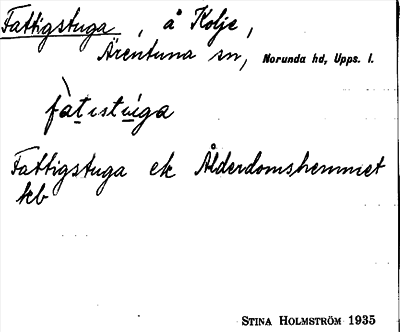 Fattigstuga, å Kolje,
Ärentuna sn, Norunda hd, Upps. l.
fàtɩstúga
Fattigstuga ek Ålderdomshemmet
kb
STINA HOLMSTRÖM 1935